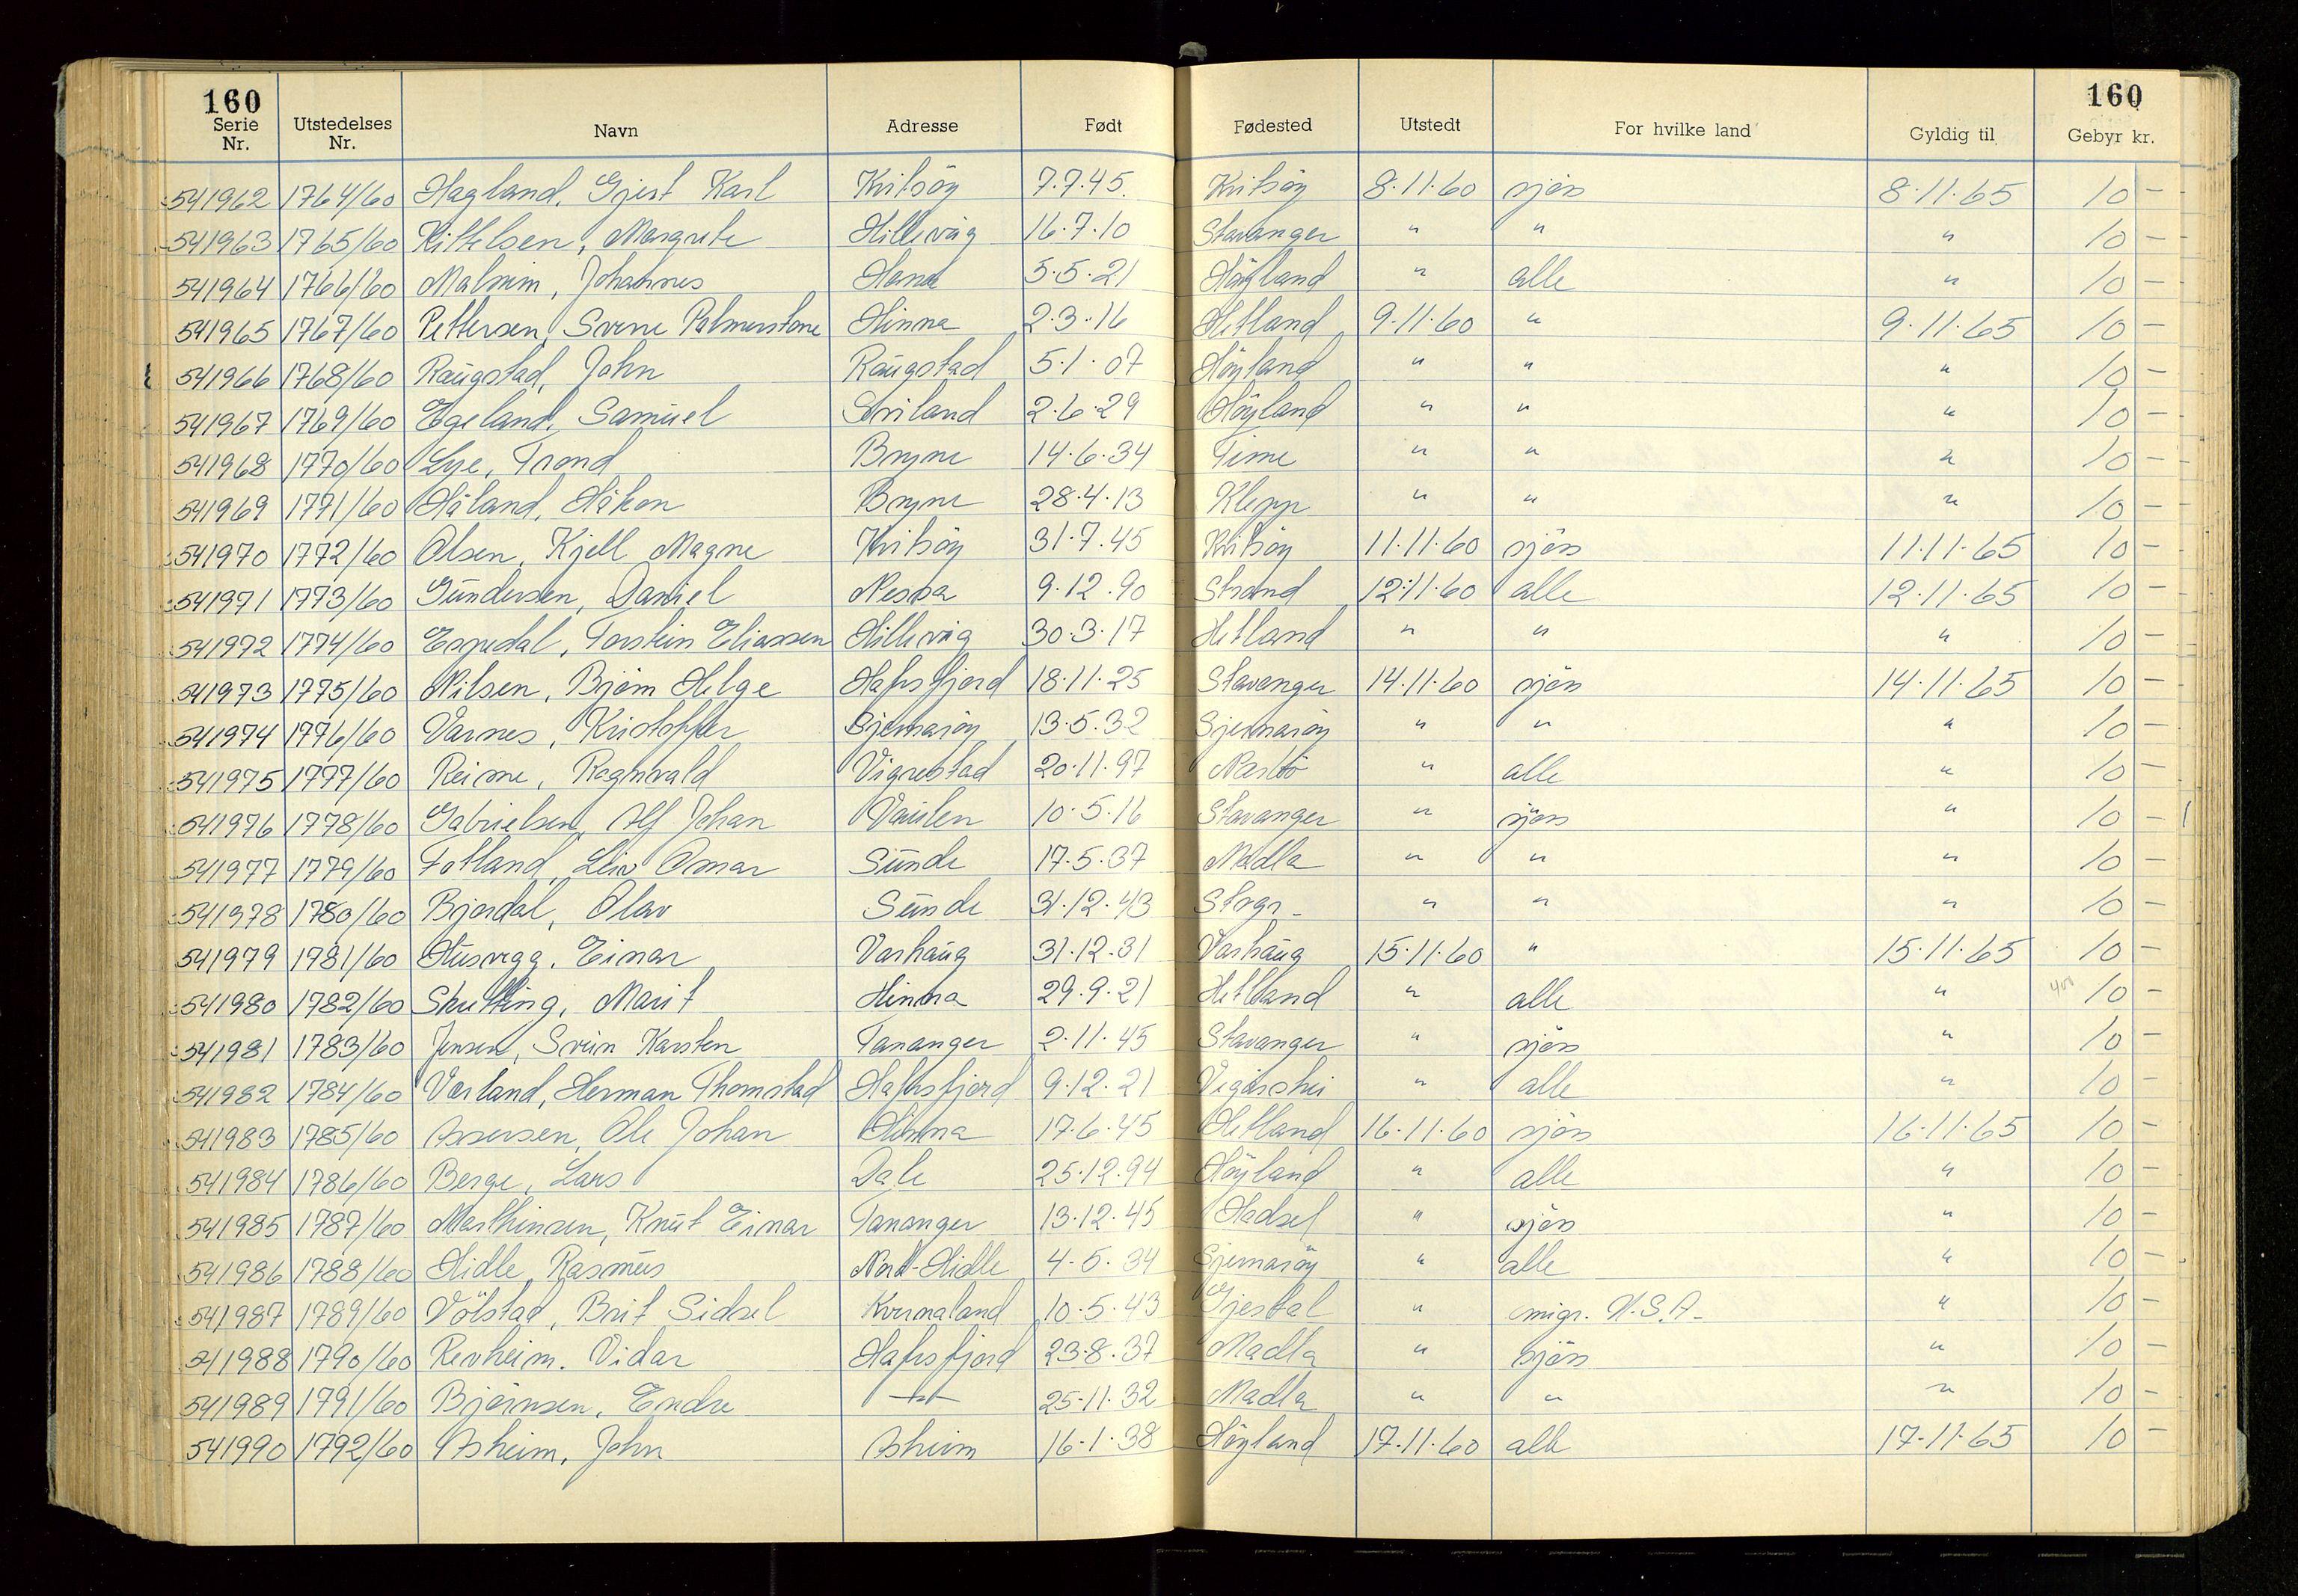 160 160
Serie Nr. Utstedelses Nr. Navn Adresse Født Fødested Utstedt For hvilke land Gyldig til Gebyr kr.
541962 1764/60 Hagland, Gjest Karl Kvitsöy 7.7.45. Kvitsöy 8.11.60 sjøs 8.11.65 10 –
541963 1765/60 Kittelsen, Margrete Hillevåg 16.7.10 Stavanger " " " 10 –
541964 1766/60 Malmin, Johannes Hana 5.5.21 Höyland " alle " 10 –
541965 1767/60 Pettersen, Sverre Palmerstone Hinna 2.3.16 Hetland 9.11.60 " 9.11.65 10 –
541966 1768/60 Raugstad, John Raugstad 5.1.07 Höyland " " " 10 –
541967 1769/60 Egeland, Samuel Sviland 2.6.29 Höyland " " " 10 –
541968 1770/60 Lye, Trond Bryne 14.6.34 Time " " " 10 –
541969 1771/60 Håland, Håkon Bryne 28.4.13 Klepp " " " 10 –
541970 1772/60 Olsen, Kjell Magne Kvitsöy 31.7.45 Kvitsöy 11.11.60 sjøs 11.11.65 10 –
541971 1773/60 Gundersen, Daniel Nessa 9.12.90 Strand 12.11.60 alle 12.11.65 10 –
541972 1774/60 Espedal, Torstein Eliassen Hillevåg 30.3.17 Hetland " " " 10 –
541973 1775/60 Nilsen, Bjørn Helge Hafrsfjord 18.11.25 Stavanger 14.11.60 sjøs 14.11.65 10 –
541974 1776/60 Varnes, Kristoffer Sjernaröy 13.5.32 Sjernaröy " " " 10 –
541975 1777/60 Reime, Ragnvald Vigrestad 20.11.97 Nærbö " alle " 10 –
541976 1778/60 Gabrielsen, Alf Johan Vaulen 10.5.16 Stavanger " sjøs " 10 –
541977 1779/60 Fotland, Leiv Omar Sunde 17.5.37 Madla " " " 10 –
541978 1780/60 Bjordal, Olav Sunde 31.12.43 Stvgr. " " " 10 –
541979 1981/60 Husvegg, Einar Varhaug 31.12.31 Varhaug 15.11.60 " 15.11.65 10 –
541980 1782/60 Skretting, Marit Hinna 29.9.21 Hetland " alle " 400 10 –
541981 1783/60 Jensen, Svein Karsten Tananger 2.11.45 Stavanger " sjøs " 10 –
541982 1784/60 Værland, Herman Thomstad Hafrsfjord 9.12.21 " alle " 10 –
541983 1785/60 Assersen, Ole Johan Hinna 17.6.45 Hetland 16.11.60 sjøs 16.11.65 10 –
541984 1786/60 Berge, Lars Dale 25.12.94 Höyland " alle " 10 –
541985 1787/60 Marthinsen, Knut Einar Tananger 13.12.45 Hadsel " sjøs " 10 –
541986 1788/60 Hidle, Rasmus Nord-Hidle 4.5.34 Sjernaröy " alle " 10 –
541987 1789/60 Völstad, Brit Sidsel Kvernaland 10.5.43 Gjestal " emigr. U.S.A. " 10 –
541988 1790/60 Revheim. Vidar Hafrsfjord 23.8.37 Madla " sjøs " 10 –
541989 1791/60 Bjørnsen, Endre –"– 25.11.32 Madla " " " 10 –
541990 1792/60 Asheim, John Asheim 16.1.38 Höyland 17.11.60 alle 17.11.65 10 –